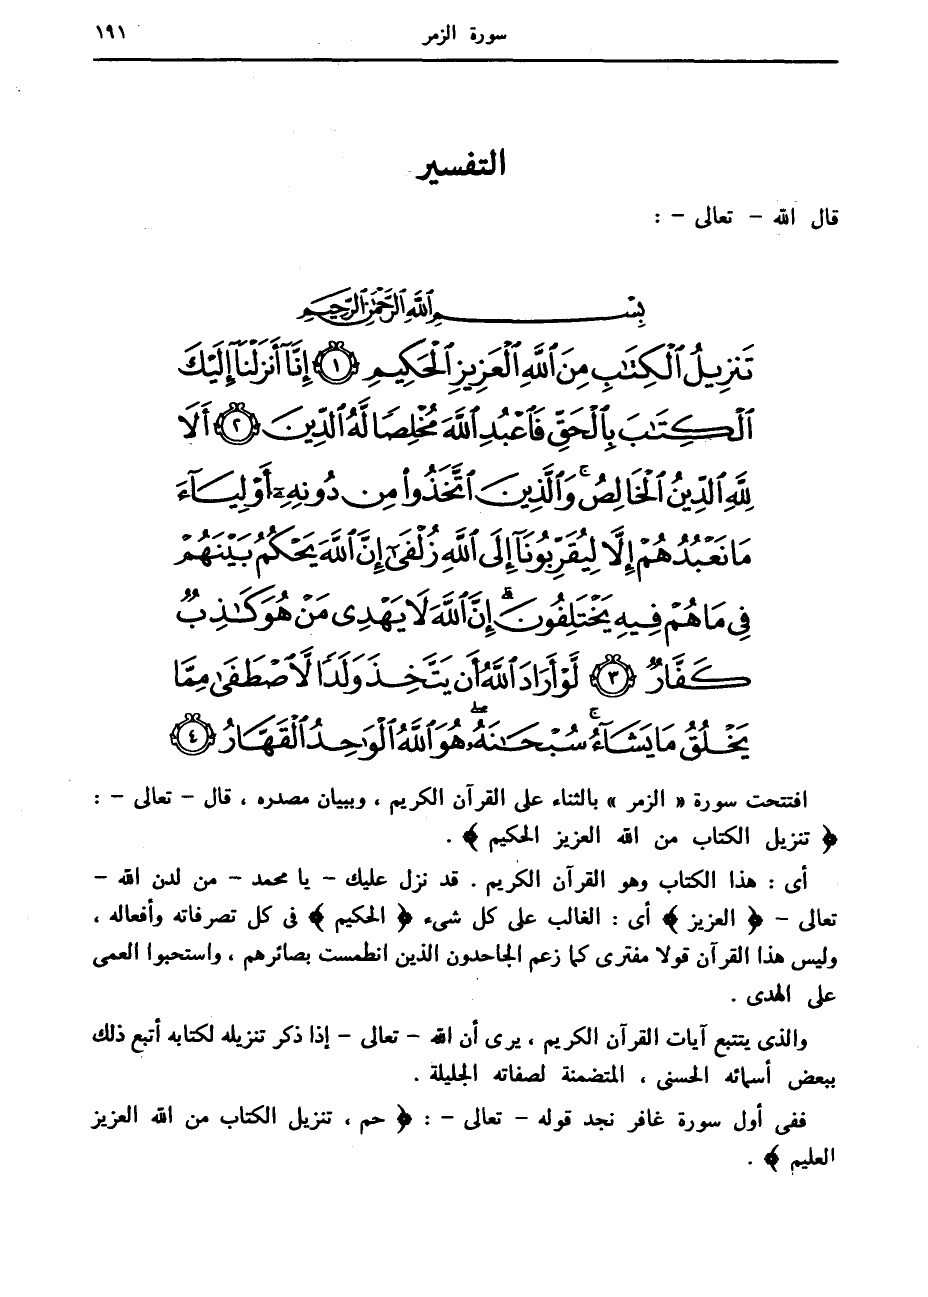 سورة الزمر ١٩١
التفسير
قال الله – تعالى – :
بِسْمِ اللَّهِ الرَّحْمَٰنِ الرَّحِيمِ
تَنزِيلُ ٱلْكِتَٰبِ مِنَ ٱللَّهِ ٱلْعَزِيزِ ٱلْحَكِيمِ ۝١ إِنَّآ أَنزَلْنَآ إِلَيْكَ
ٱلْكِتَٰبَ بِٱلْحَقِّ فَٱعْبُدِ ٱللَّهَ مُخْلِصًا لَّهُ ٱلدِّينَ ۝٢ أَلَا
لِلَّهِ ٱلدِّينُ ٱلْخَالِصُ ۚ وَٱلَّذِينَ ٱتَّخَذُوا۟ مِن دُونِهِۦٓ أَوْلِيَآءَ
مَا نَعْبُدُهُمْ إِلَّا لِيُقَرِّبُونَآ إِلَى ٱللَّهِ زُلْفَىٰٓ إِنَّ ٱللَّهَ يَحْكُمُ بَيْنَهُمْ
فِى مَا هُمْ فِيهِ يَخْتَلِفُونَ ۗ إِنَّ ٱللَّهَ لَا يَهْدِى مَنْ هُوَ كَٰذِبٌ
كَفَّارٌ ۝٣ لَّوْ أَرَادَ ٱللَّهُ أَن يَتَّخِذَ وَلَدًا لَّٱصْطَفَىٰ مِمَّا
يَخْلُقُ مَا يَشَآءُ ۚ سُبْحَٰنَهُۥ ۖ هُوَ ٱللَّهُ ٱلْوَٰحِدُ ٱلْقَهَّارُ ۝٤
افتتحت سورة « الزمر » بالثناء على القرآن الكريم ، وببيان مصدره ، قال – تعالى – :
﴿ تنزيل الكتاب من الله العزيز الحكيم ﴾ .
أى : هذا الكتاب وهو القرآن الكريم . قد نزل عليك – يا محمد – من لدن الله –
تعالى – ﴿ العزيز ﴾ أى : الغالب على كل شىء ﴿ الحكيم ﴾ فى كل تصرفاته وأفعاله ،
وليس هذا القرآن قولا مفترى كما زعم الجاحدون الذين انطمست بصائرهم ، واستحبوا العمى
على الهدى .
والذى يتتبع آيات القرآن الكريم ، يرى أن الله – تعالى – إذا ذكر تنزيله لكتابه أتبع ذلك
ببعض أسمائه الحسنى ، المتضمنة لصفاته الجليلة .
ففى أول سورة غافر نجد قوله – تعالى – : ﴿ حم ، تنزيل الكتاب من الله العزيز
العليم ﴾ .